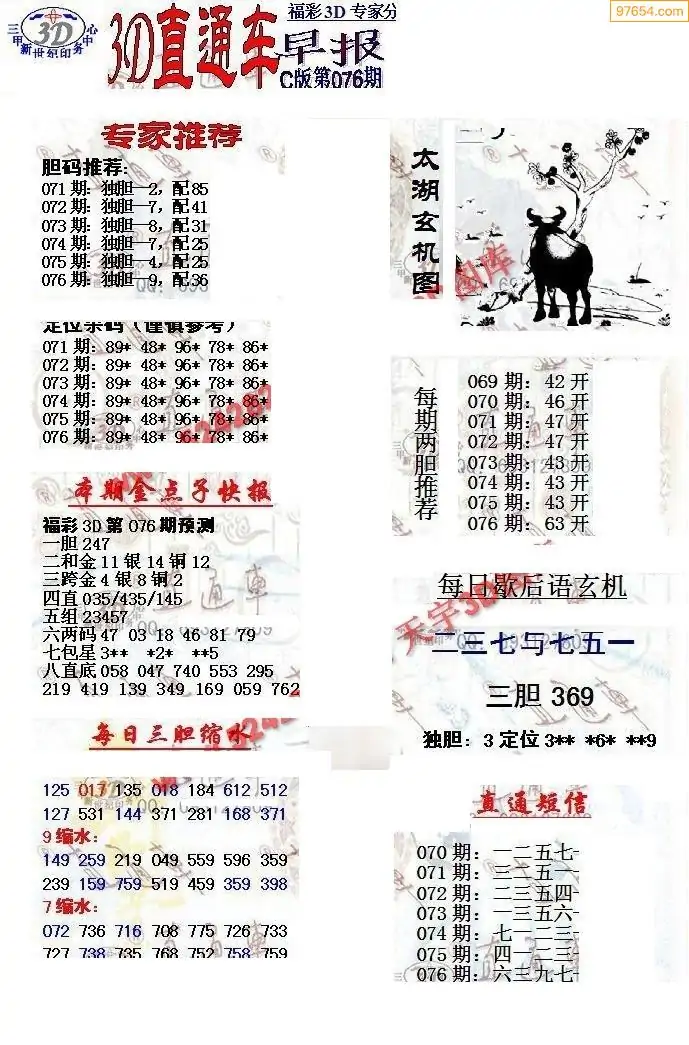 97654.com
福彩3D 专家分
三甲 3D 中心
新世纪印务
3D直通车
早报
C版第076期
专家推荐
胆码推荐:
071 期: 独胆—2, 配85
072 期: 独胆—7, 配41
073 期: 独胆—8, 配31
074 期: 独胆—7, 配25
075 期: 独胆—4, 配25
076 期: 独胆—9, 配36
太湖玄机图
定位杀码（谨慎参考）
071 期: 89* 48* 96* 78* 86*
072 期: 89* 48* 96* 78* 86*
073 期: 89* 48* 96* 78* 86*
074 期: 89* 48* 96* 78* 86*
075 期: 89* 48* 96* 78* 86*
076 期: 89* 48* 96* 78* 86*
每期两胆推荐
069 期: 42 开
070 期: 46 开
071 期: 47 开
072 期: 47 开
073 期: 43 开
074 期: 43 开
075 期: 43 开
076 期: 63 开
本期金点子快报
福彩 3D 第 076 期预测
一胆 247
二和金 11 银 14 铜 12
三跨金 4 银 8 铜 2
四直 035/435/145
五组 23457
六两码 47 03 18 46 81 79
七包星 3** *2* **5
八直底 058 047 740 553 295
219 419 139 349 169 059 762
每日歇后语玄机
二三七与七五一
三胆 369
独胆: 3 定位 3** *6* **9
每日三胆缩水
125 017 135 018 184 612 512
127 531 144 371 281 168 371
9 缩水:
149 259 219 049 559 596 359
239 159 759 519 459 359 398
7 缩水:
072 736 716 708 775 726 733
727 738 735 768 752 758 759
直通短信
070 期: 一二五七
071 期: 三二五一
072 期: 二三五四
073 期: 一三五六
074 期: 七一二三
075 期: 四一二三
076 期: 六三九七